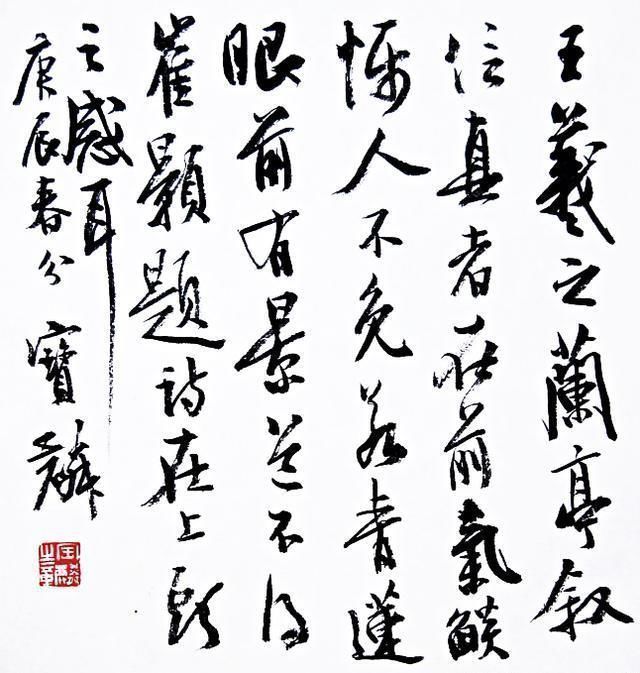 王羲之蘭亭叙
信真者在前氣燄
怖人不免若青蓮
眼前有景道不得
崔顥題詩在上頭
之感耳
庚辰春分 寶麟